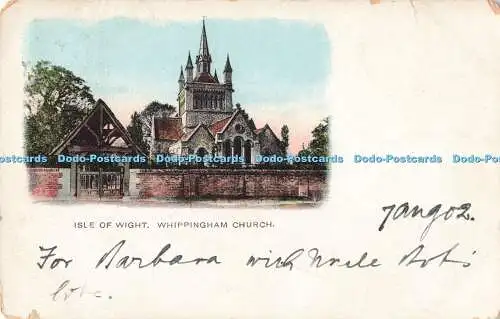 Dodo-Postcards Dodo-Postcards Dodo-Postcards Dodo-Postcards Dodo-Postcards Dodo-Postcards
ISLE OF WIGHT. WHIPPINGHAM CHURCH.
For Barbara with Uncle Bob's
love.